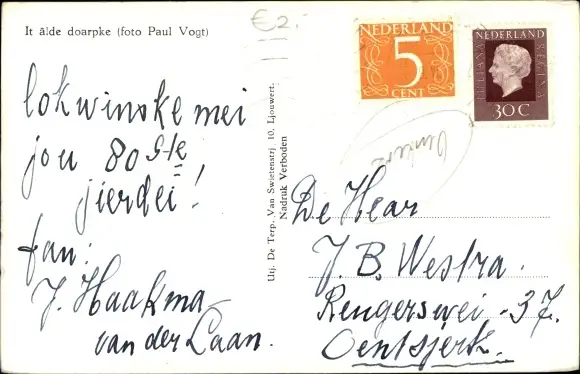 It âlde doarpke (foto Paul Vogt)
€2.-
NEDERLAND
5
CENT
NEDERLAND
JULIANA REGINA
30C
lokwinske mei
jou 80 ste
jierdei!
fan:
J. Haakma-
van der Laan.
Utj. De Terp, Van Swietenstrj 10, Ljouwert.
Nadruk Verboden
De Hear
J. B. Westra.
Rengerswei - 37.
Oentsjerk.